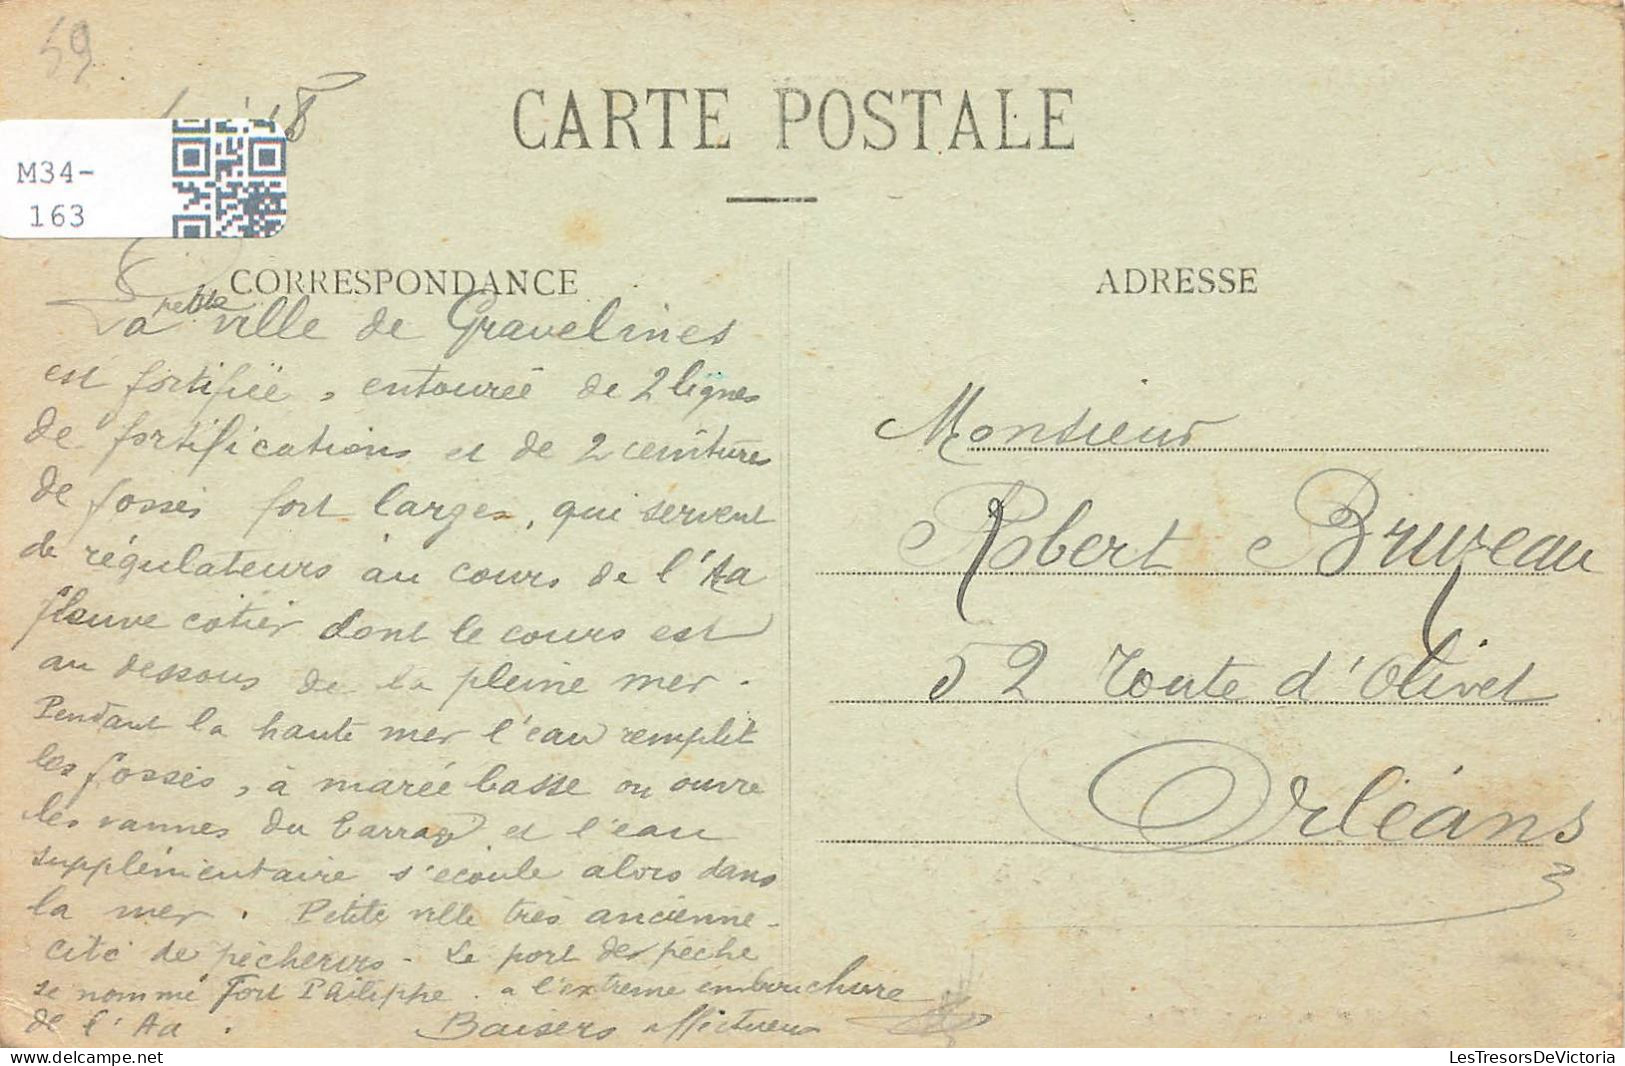 59
18
CARTE POSTALE
M34-
163
CORRESPONDANCE
ADRESSE
La petite ville de Gravelines
est fortifiée, entourée de 2 lignes
de fortifications et de 2 ceintures
de fossés fort larges, qui servent
de régulateurs au cours de l'Aa
fleuve côtier dont le cours est
au dessous de la pleine mer.
Pendant la haute mer l'eau remplit
les fossés, à marée basse on ouvre
les vannes du barrage et l'eau
supplémentaire s'écoule alors dans
la mer. Petite ville très ancienne -
cité de pêcheurs - Le port de pêche
se nomme Fort Philippe . a l'extreme embouchure
de l'Aa . Baisers affectueux
Monsieur
Robert Bruzeau
52 route d'Olivet
Orléans
LesTresorsDeVictoria